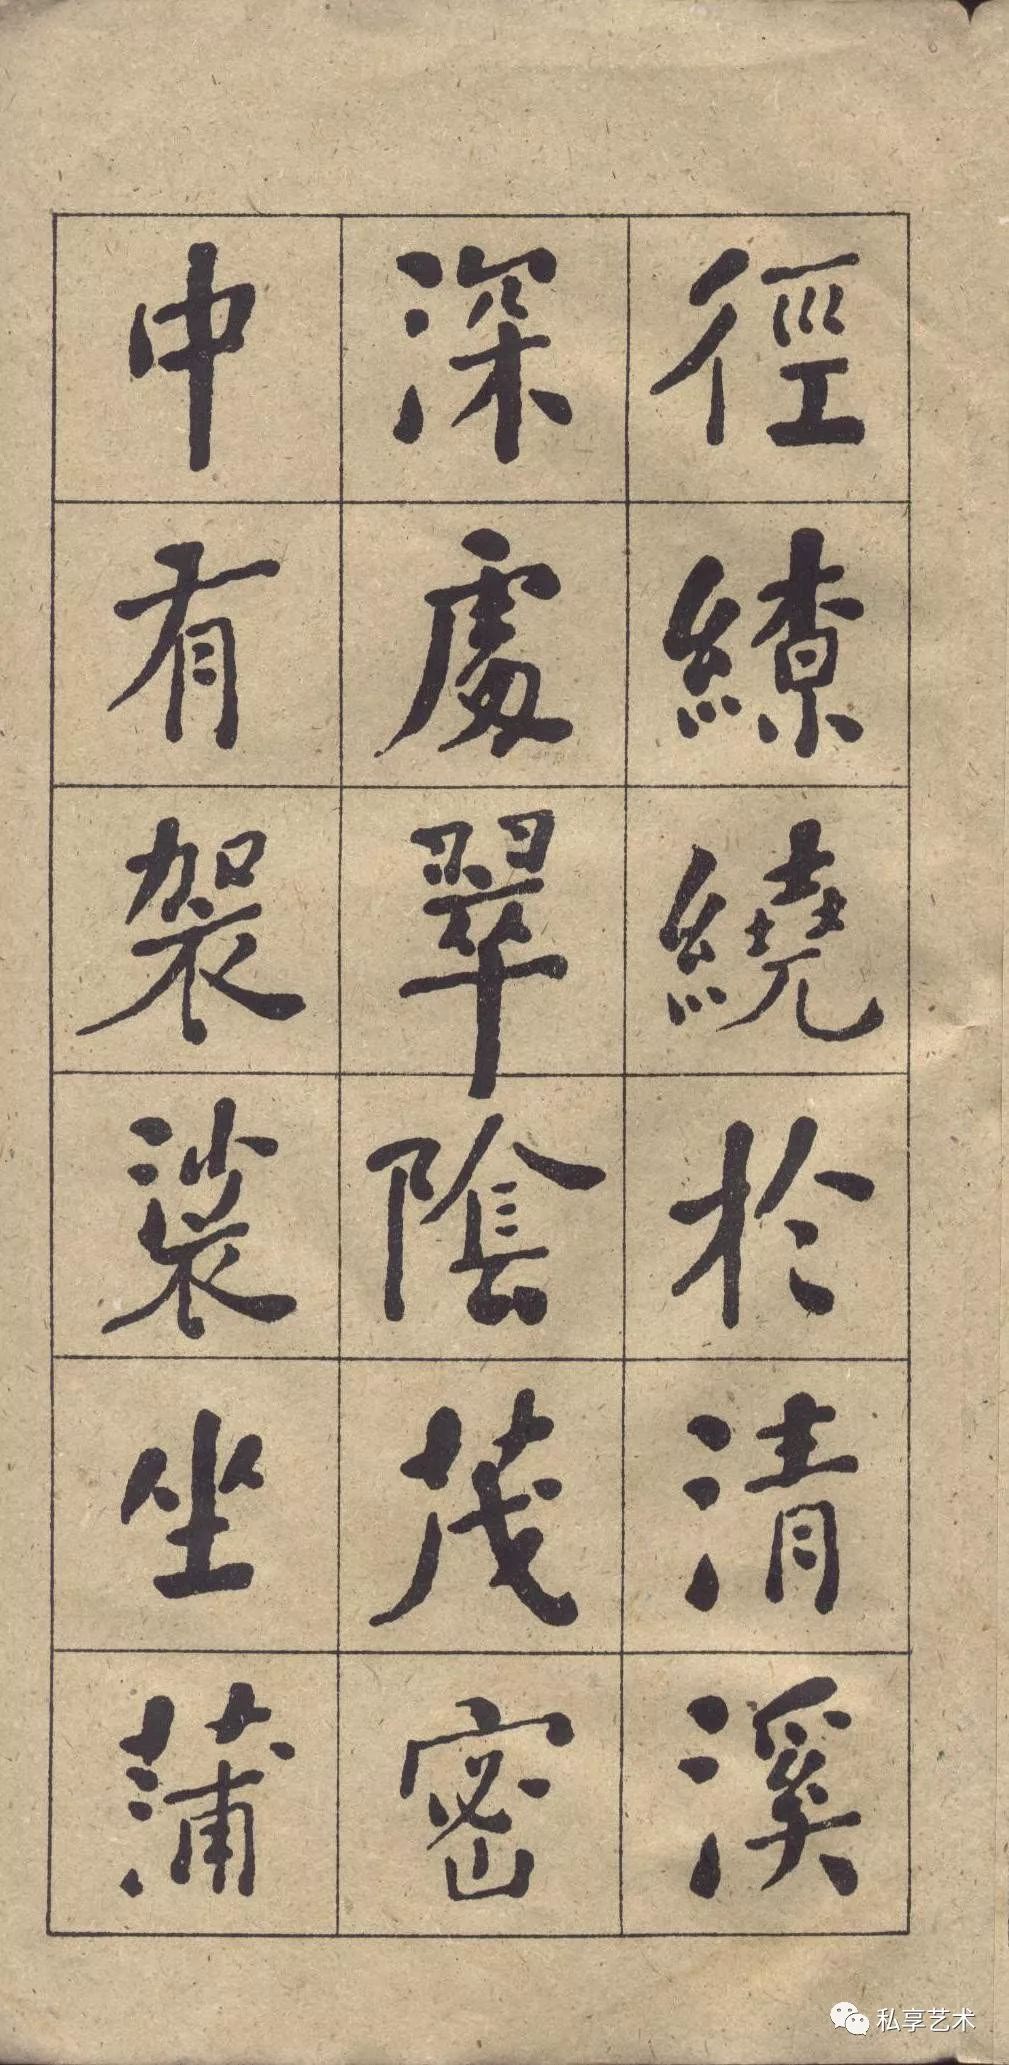 徑繚繞於清溪
深處翠陰茂密
中有袈裟坐蒲
私享艺术